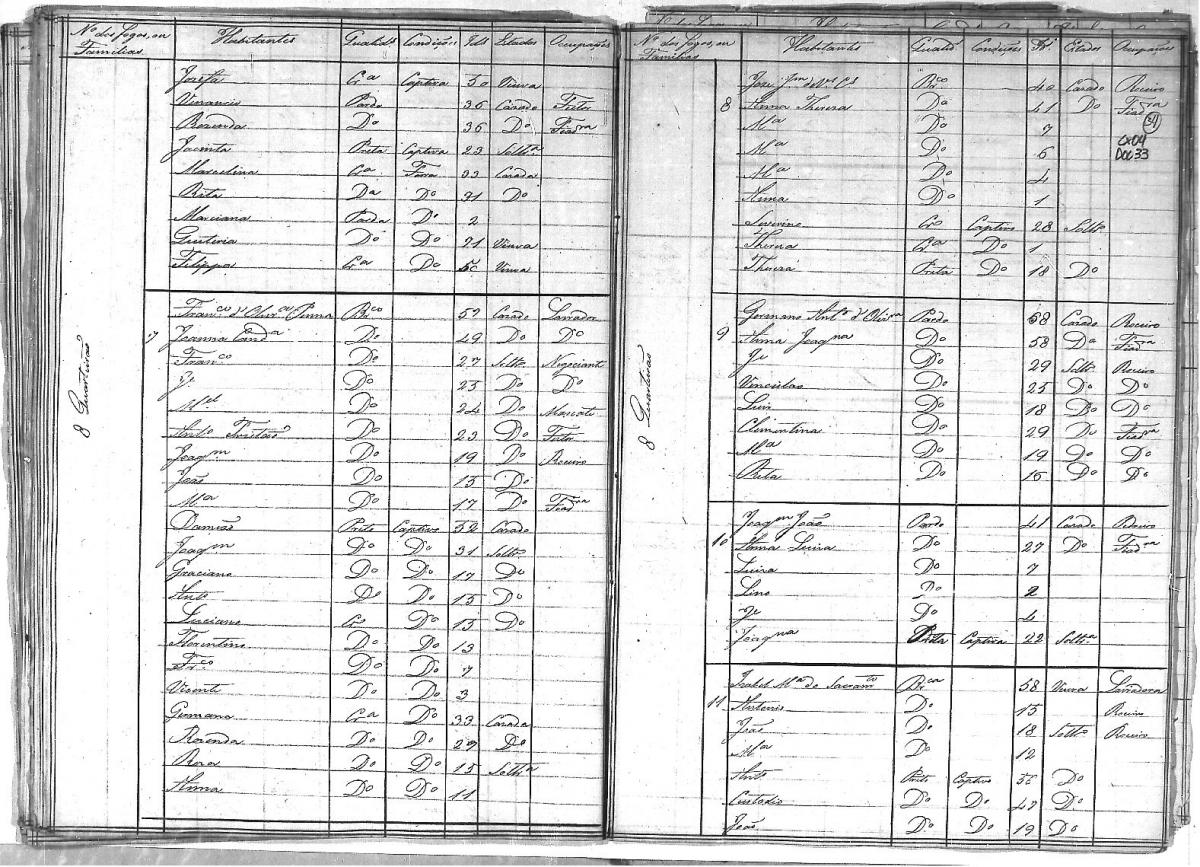 Nº dos Fogos, ou Familias Habitantes Qualids Condições Ids Estados Occupações
8 Quarteirão
Josefa Crª Captiva 50 Viuva
Venancio Pardo 36 Casado Feitor
Rozenda Dº 36 Dº Fiadrª
Jacinta Preta Captiva 23 Soltª
Marcelina Crª Forra 33 Casada
Rita Dª Dº 31 Dº
Marciana Parda Dº 2
Quiteria Dº Dº 21 Viuva
Filippa Crª Dº 50 Viuva
7
Franco d'Olivra Penna Brco 57 Casado Lavrador
Joanna Candª Dº 49 Dº Dº
Franco Dº 27 Solto Negociante
Je Dº 25 Dº Dº
Mel Dº 24 Dº Mascate
Anto Dº 23 Dº Feitor
Joaqm Dº 19 Dº Roceiro
João Dº 15 Dº
Mª Dº 17 Dº Fiadrª
Damião Preto Captivo 52 Casado
Joaqm Dº Dº 31 Solto
Graciano Dº Dº 17 Dº
Anto Dº Dº 15 Dº
Luciano Cro Dº 15 Dº
Florentino Dº Dº 13
Frco Dº Dº 7
Vicente Dº Dº 3
Germana Crª Dº 33 Casada
Rozenda Dº Dº 29 Dº
Rosa Dº Dº 15 Soltª
Anna Dº Dº 11
Nº dos Fogos, ou Familias Habitantes Qualids Condições Ids Estados Occupações
8 Quarteirão
8
Brco 40 Casado Roceiro
Anna Thereza Dº 41 Dº Fiadrª
Mª Dº 7
Mª Dº 6
Mª Dº 4
Anna Dº 1
Severino Cro Captivo 28 Solto
Thereza Crª Dº 1
Thereza Preta Dº 18 Dº
CX04
DOC33
9
Germano Anto d'Olivra Pardo 68 Casado Roceiro
Anna Joaqna Dº 58 Dº Fiadrª
Je Dº 29 Solto Roceiro
Venceslao Dº 25 Dº Dº
Luis Dº 18 Dº Dº
Clementina Dº 29 Dº Fiadrª
Mª Dº 19 Dº Dº
Rita Dº 16 Dº Dº
10
Joaqm João Pardo 41 Casado Roceiro
Anna Luiza Dº 27 Dº Fiadrª
Luiza Dº 7
Lino Dº 2
Je Dº 4
Joaqna Preta Captiva 22 Soltª
11
Izabel Mª do Sacramto Brca 58 Viuva Lavradora
Antonio Dº 15 Roceiro
João Dº 18 Solto Roceiro
Mª Dº 12
Anto Preto Captivo Dº
Custodio Dº Dº 47 Dº
João Dº Dº 19 Dº